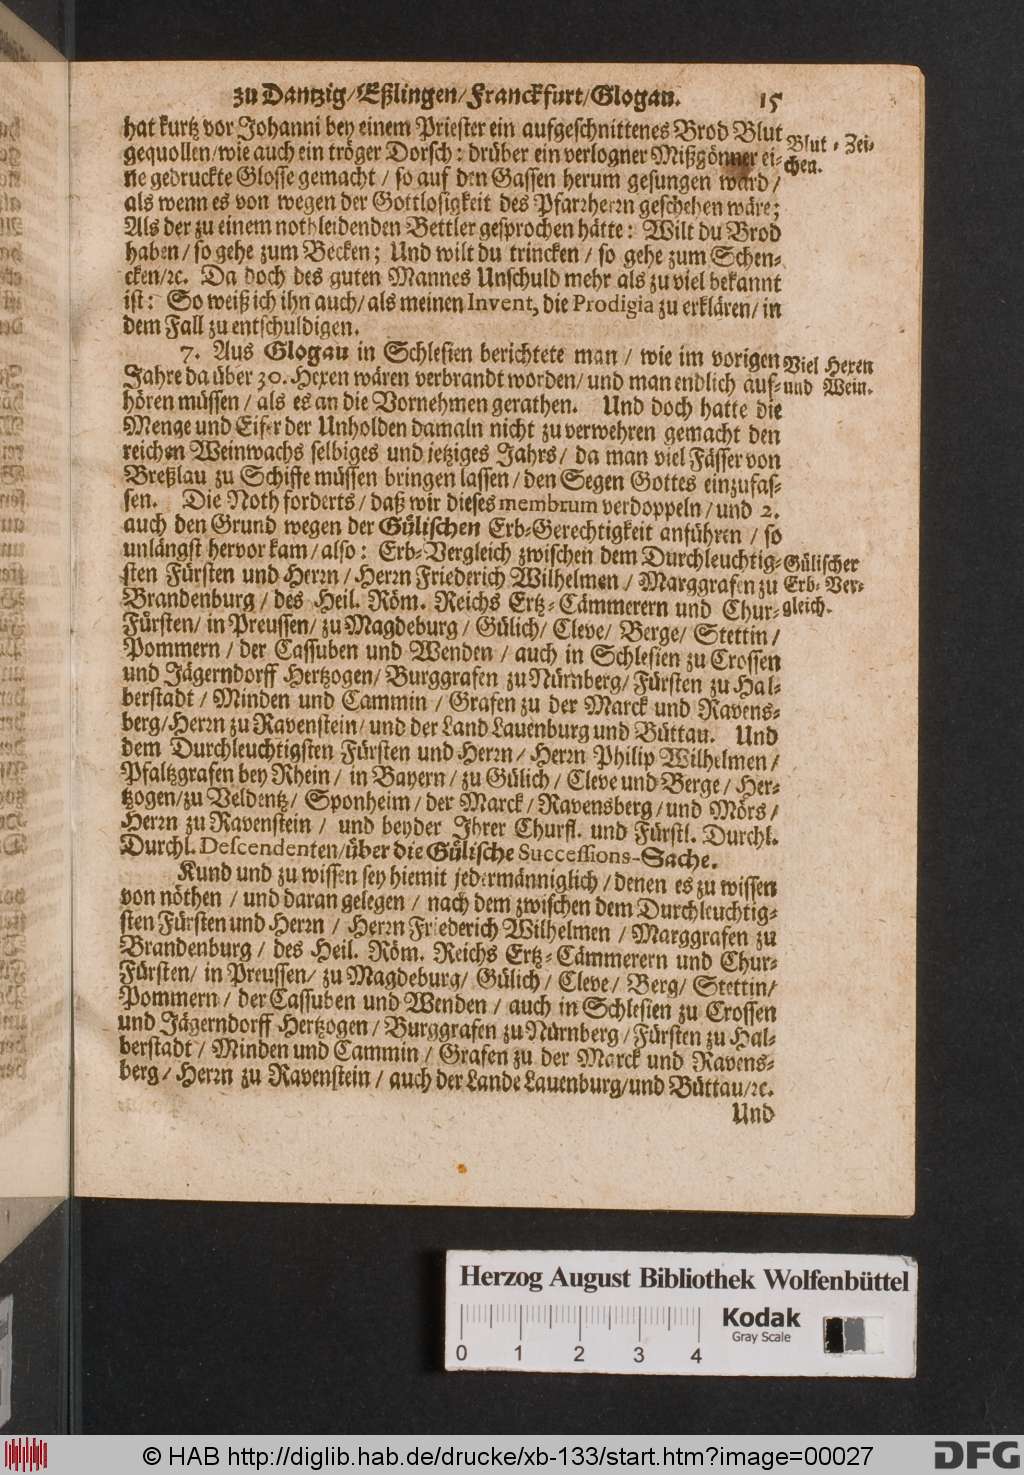 zu Dantzig/Eßlingen/Franckfurt/Glogau. 15
hat kurtz vor Johanni bey einem Priester ein aufgeschnittenes Brod Blut
gequollen/wie auch ein tröger Dorsch: drüber ein verlogner Mißgönner ei-
ne gedruckte Glosse gemacht / so auf den Gassen herum gesungen ward /
als wenn es von wegen der Gottlosigkeit des Pfarrherrn geschehen wäre;
Als der zu einem nothleidenden Bettler gesprochen hätte: Wilt du Brod
haben / so gehe zum Becken; Und wilt du trincken / so gehe zum Schen-
cken/ꝛc. Da doch des guten Mannes Unschuld mehr als zu viel bekannt
ist: So weiß ich ihn auch/ als meinen Invent, die Prodigia zu erklären/ in
dem Fall zu entschuldigen.
Blut - Zei-
chen.
7. Aus Glogau in Schlesien berichtete man / wie im vorigen
Jahre da über 30. Hexen wären verbrandt worden/ und man endlich auf-
hören müssen / als es an die Vornehmen gerathen. Und doch hatte die
Menge und Eifer der Unholden damaln nicht zu verwehren gemacht den
reichen Weinwachs selbiges und jetziges Jahrs / da man viel Fässer von
Breßlau zu Schiffe müssen bringen lassen / den Segen Gottes einzufas-
sen. Die Noth forderts / daß wir dieses membrum verdoppeln / und 2.
auch den Grund wegen der Gülischen Erb-Gerechtigkeit anführen / so
unlängst hervor kam / also: Erb-Vergleich zwischen dem Durchleuchtig-
sten Fürsten und Herrn / Herrn Friederich Wilhelmen / Marggrafen zu
Brandenburg / des Heil. Röm. Reichs Ertz-Cämmerern und Chur-
Fürsten/ in Preussen/ zu Magdeburg / Gülich/ Cleve/ Berge/ Stettin /
Pommern / der Cassuben und Wenden / auch in Schlesien zu Crossen
und Jägerndorff Hertzogen/ Burggrafen zu Nürnberg/ Fürsten zu Hal-
berstadt / Minden und Cammin / Grafen zu der Marck und Ravens-
berg/Herrn zu Ravenstein/ und der Land Lauenburg und Büttau. Und
dem Durchleuchtigsten Fürsten und Herrn / Herrn Philip Wilhelmen /
Pfaltzgrafen bey Rhein / in Bayern / zu Gülich / Cleve und Berge / Her-
tzogen/zu Veldentz/ Sponheim / der Marck / Ravensberg / und Mörs /
Herrn zu Ravenstein / und beyder Ihrer Churfl. und Fürstl. Durchl.
Durchl. Descendenten/über die Gülische Successions-Sache.
Viel Hexen
und Wein.
Gülischer
Erb-Ver-
gleich.
Kund und zu wissen sey hiemit jedermänniglich / denen es zu wissen
von nöthen / und daran gelegen / nach dem zwischen dem Durchleuchtig-
sten Fürsten und Herrn / Herrn Friederich Wilhelmen / Marggrafen zu
Brandenburg / des Heil. Röm. Reichs Ertz-Cämmerern und Chur-
Fürsten/ in Preussen/ zu Magdeburg/ Gülich/ Cleve/ Berg/ Stettin/
Pommern / der Cassuben und Wenden / auch in Schlesien zu Crossen
und Jägerndorff Hertzogen / Burggrafen zu Nürnberg / Fürsten zu Hal-
berstadt / Minden und Cammin / Grafen zu der Marck und Ravens-
berg / Herrn zu Ravenstein / auch der Lande Lauenburg/und Büttau/ꝛc.
Und
Herzog August Bibliothek Wolfenbüttel
0 1 2 3 4
Kodak
Gray Scale
© HAB http://diglib.hab.de/drucke/xb-133/start.htm?image=00027
DFG